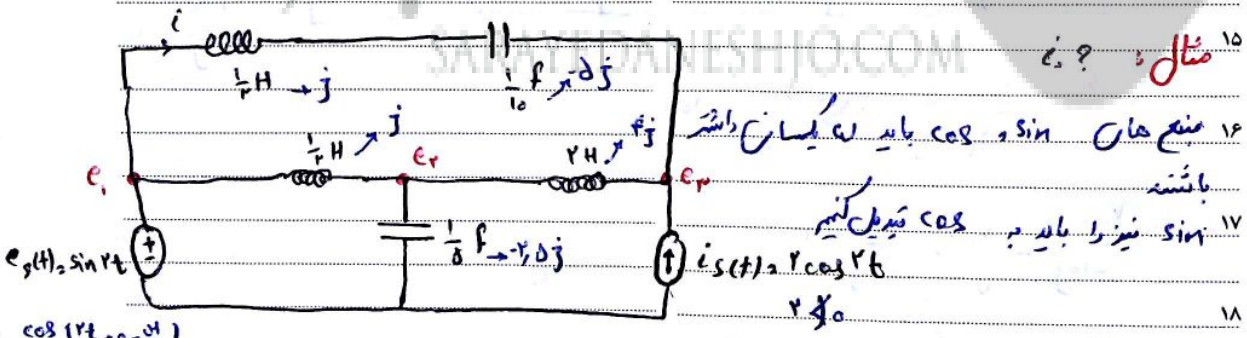 SARAYEDANESHJO.COM
۱۵ مثال : i ، ?
۱۶ منبع های sin و cos باید ω یکسان داشته
باشند
۱۷ sin نیز را باید به cos تبدیل کنیم
۱۸
i
½H → j
1/10 f → -۵j
½H → j
e۲
۲H → ۴j
e۱
e۳
1/۵ f → -۲٫۵j
es(t) = sin ۲t
is(t) = ۲ cos ۲t
۲ ∡ 0
cos (۲t